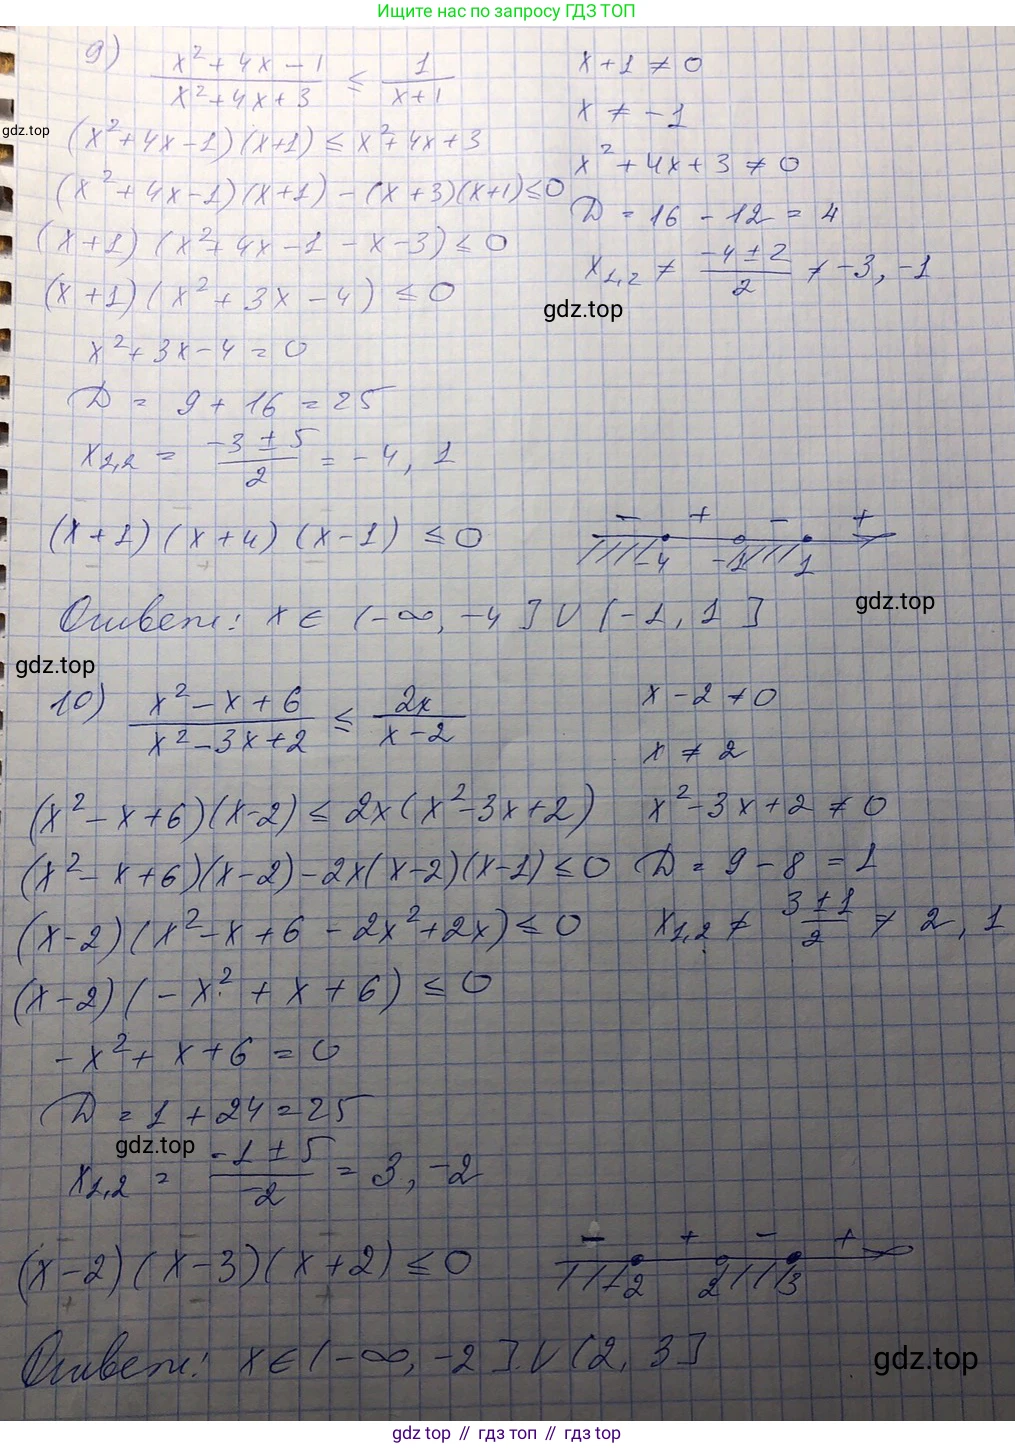 Ищите нас по запросу ГДЗ ТОП
9) (x² + 4x - 1)/(x² + 4x + 3) ≤ 1/(x+1)
x + 1 ≠ 0
x ≠ -1
gdz.top
(x² + 4x - 1)(x+1) ≤ x² + 4x + 3
x² + 4x + 3 ≠ 0
(x² + 4x - 1)(x+1) - (x+3)(x+1) ≤ 0
D = 16 - 12 = 4
(x+1)(x² + 4x - 1 - x - 3) ≤ 0
x1,2 ≠ (-4 ± 2)/2 ≠ -3, -1
(x+1)(x² + 3x - 4) ≤ 0
gdz.top
x² + 3x - 4 = 0
D = 9 + 16 = 25
x1,2 = (-3 ± 5)/2 = -4, 1
(x+1)(x+4)(x-1) ≤ 0
- + - +
-4 -1 1
Ответ: x ∈ (-∞, -4] ∪ (-1, 1]
gdz.top
gdz.top
10) (x² - x + 6)/(x² - 3x + 2) ≤ 2x/(x-2)
x - 2 ≠ 0
x ≠ 2
(x² - x + 6)(x-2) ≤ 2x(x² - 3x + 2)
x² - 3x + 2 ≠ 0
(x² - x + 6)(x-2) - 2x(x-2)(x-1) ≤ 0
D = 9 - 8 = 1
(x-2)(x² - x + 6 - 2x² + 2x) ≤ 0
x1,2 ≠ (3 ± 1)/2 ≠ 2, 1
(x-2)(-x² + x + 6) ≤ 0
-x² + x + 6 = 0
D = 1 + 24 = 25
gdz.top
x1,2 = (-1 ± 5)/-2 = 3, -2
(x-2)(x-3)(x+2) ≤ 0
- + - +
-2 2 3
Ответ: x ∈ (-∞, -2] ∪ (2, 3]
gdz.top
gdz top // гдз топ // gdz top